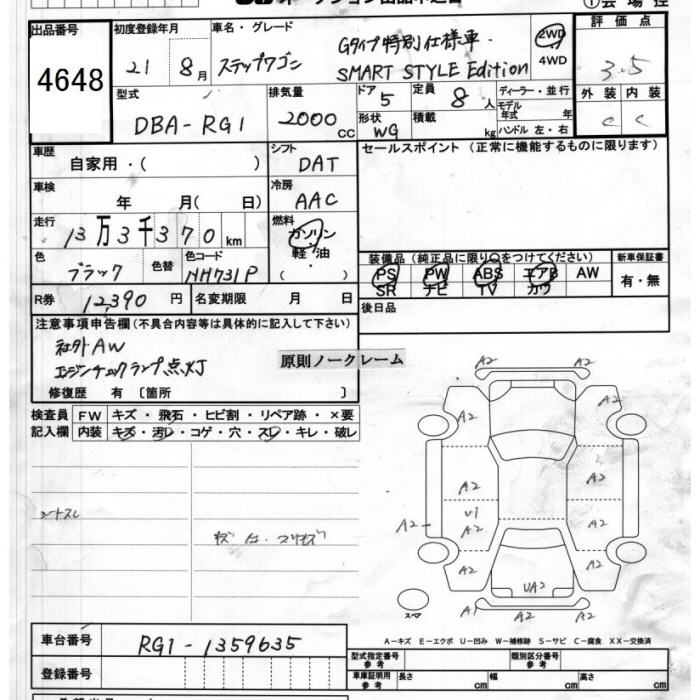 出品番号 初度登録年月 車名・グレード 評価点
4648 21 8月 ステップワゴン Gタイプ特別仕様車. 2WD
SMART STYLE Edition 4WD 3.5
型式 排気量 ドア 5 定員 8人 ディーラー・並行 外装 内装
DBA-RG1 2000 CC 形状 WG 積載 kg モデル年式 年 ハンドル 左・右 C C
車歴 自家用・( ) シフト DAT セールスポイント (正常に機能するものに限ります)
車検 年 月( 日) 冷房 AAC
走行 13万3千370km 燃料 ガソリン 軽・油 ・( )
色 ブラック 色替 色コード NH731P
装備品(純正品に限り○をつけてください) 新車保証書
PS PW ABS エアB AW 有・無
SR ナビ TV カワ
R券 12,390円 名変期限 月 日 後日品
注意事項申告欄(不具合内容等は具体的に記入して下さい)
社外AW
エンジンチェックランプ点灯
原則ノークレーム
修復歴 有 〔箇所 〕
検査員 FW キズ・飛石・ヒビ割・リペア跡・×要
記入欄 内装 キズ・汚レ・コゲ・穴・スレ・キレ・破レ
シートスレ
A2 A2
A2 A2
A2 A2
U1
A2 A2 A2
A2 A2
UA2
スペア A1 A2
A-キズ E-エクボ U-凹み W-補修跡 S-サビ C-腐食 XX-交換済
車台番号 RG1-1359635
型式指定番号 参考 類別区分番号 参考
登録番号 車庫証明用 参考 長さ cm 幅 cm 高さ cm